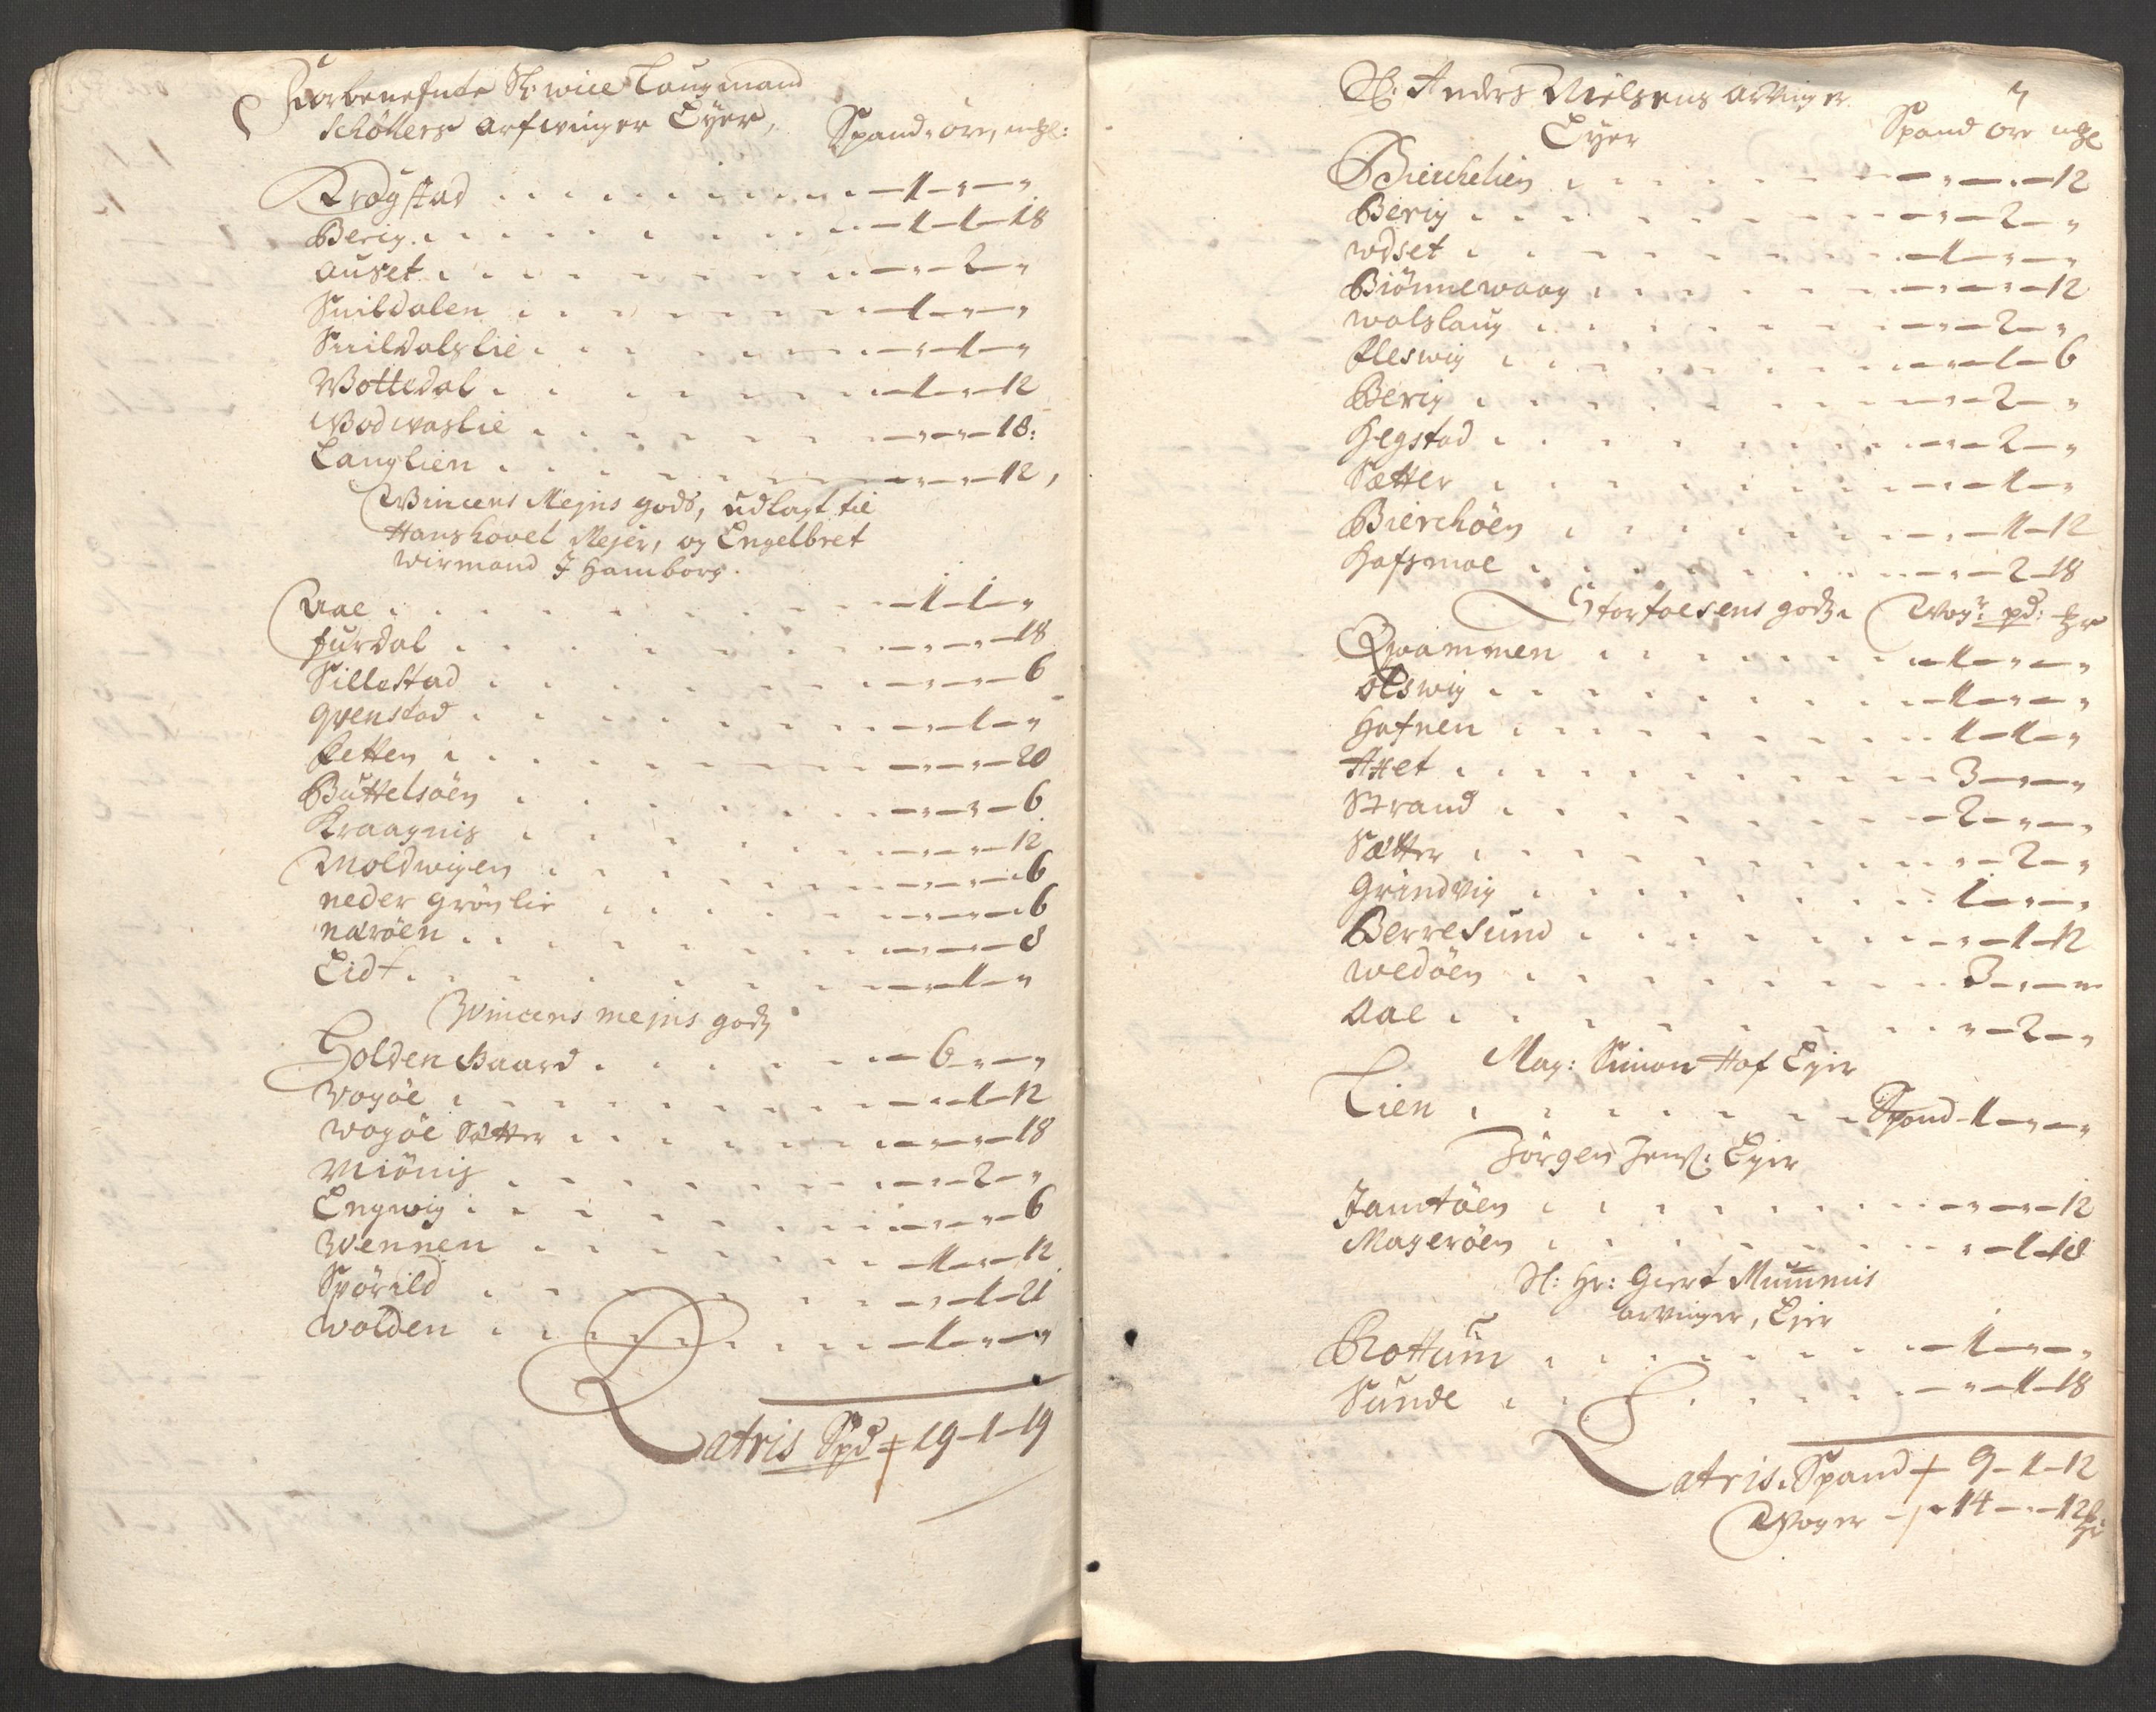 Forbenefnte Sl: wice Laugmand
Schøllers arfwinger Eyer, Spand, øre, mgl:
Krogstad - 1 - " - "
Berig - 1 - 1 - 18
Auset - " - 2 - "
Snildalen - 1 - " - "
Snildalslie - " - 1 - "
Wottedal - 1 - " - 12
Wodwaslie - " - " - 18:
Langlien - " - " - 12,
Wincens Mejns gods, udlagt til
Hans hovel Mejer, og Engelbret
Wirmand I Hamborg.
Aae - 1 - 1 - "
furdal - " - " - 18
Sillestad - " - " - 6
Qvenstad - " - 1 - "
Fetten - " - " - 20
Buttelsøen - " - " - 6
Kraagnis - " - " - 12
Moldwigen - " - " - 6
neder grønlie - " - " - 6
nærøen - " - " - 8
Eidt - " - 1 - "
Wincens mejns godz
Holden Gaard - 6 - " - "
Wogøe - " - 1 - 12
Wogøe Sætter - " - " - 18
Miønis - " - 2 - "
Engwig - " - " - 6
Wennen - 1 - " - 12
Spørild - " - 1 - 21
Wolden - 1 - " - "
Latris Spd - 19 - 1 - 19
Sl: Anders Nielsens arvinger
Eyer Spand øre mgl
Bierchelien - " - " - 12
Berig - " - 2 - "
Wdset - 1 - " - "
Biønnewaag - " - " - 12
Walslaug - " - 2 - "
Fleswig - " - 1 - 6
Berig - " - 2 - "
Hegstad - " - 2 - "
Sætter - " - 1 - "
Bierchøen - " - 1 - 12
Hafsmoe - " - 2 - 18
Storfoesens godz Wog: pd: hr
Qvammen - 1 - " - "
Olswig - 1 - " - "
Hafnen - 1 - 1 - "
Attet - 3 - " - "
Strand - 2 - " - "
Sætter - " - 2 - "
Grindvig - 1 - " - "
Berresund - " - 1 - 12
Wedøen - 3 - " - "
Aae - " - 2 - "
Mag: Simon Hof Eyer
Lien - Spand - 1 - " - "
Jørgen Jens: Eyer
Jamtøen - " - " - 12
Magerøen - " - 1 - 18
Sl: Hr: Giert Mummis
arvinger, Ejer
Rottum - 1 - " - "
Sunde - " - 1 - 18
Latris. Spand - 9 - 1 - 12
Woger - 14 - " - 12 hr